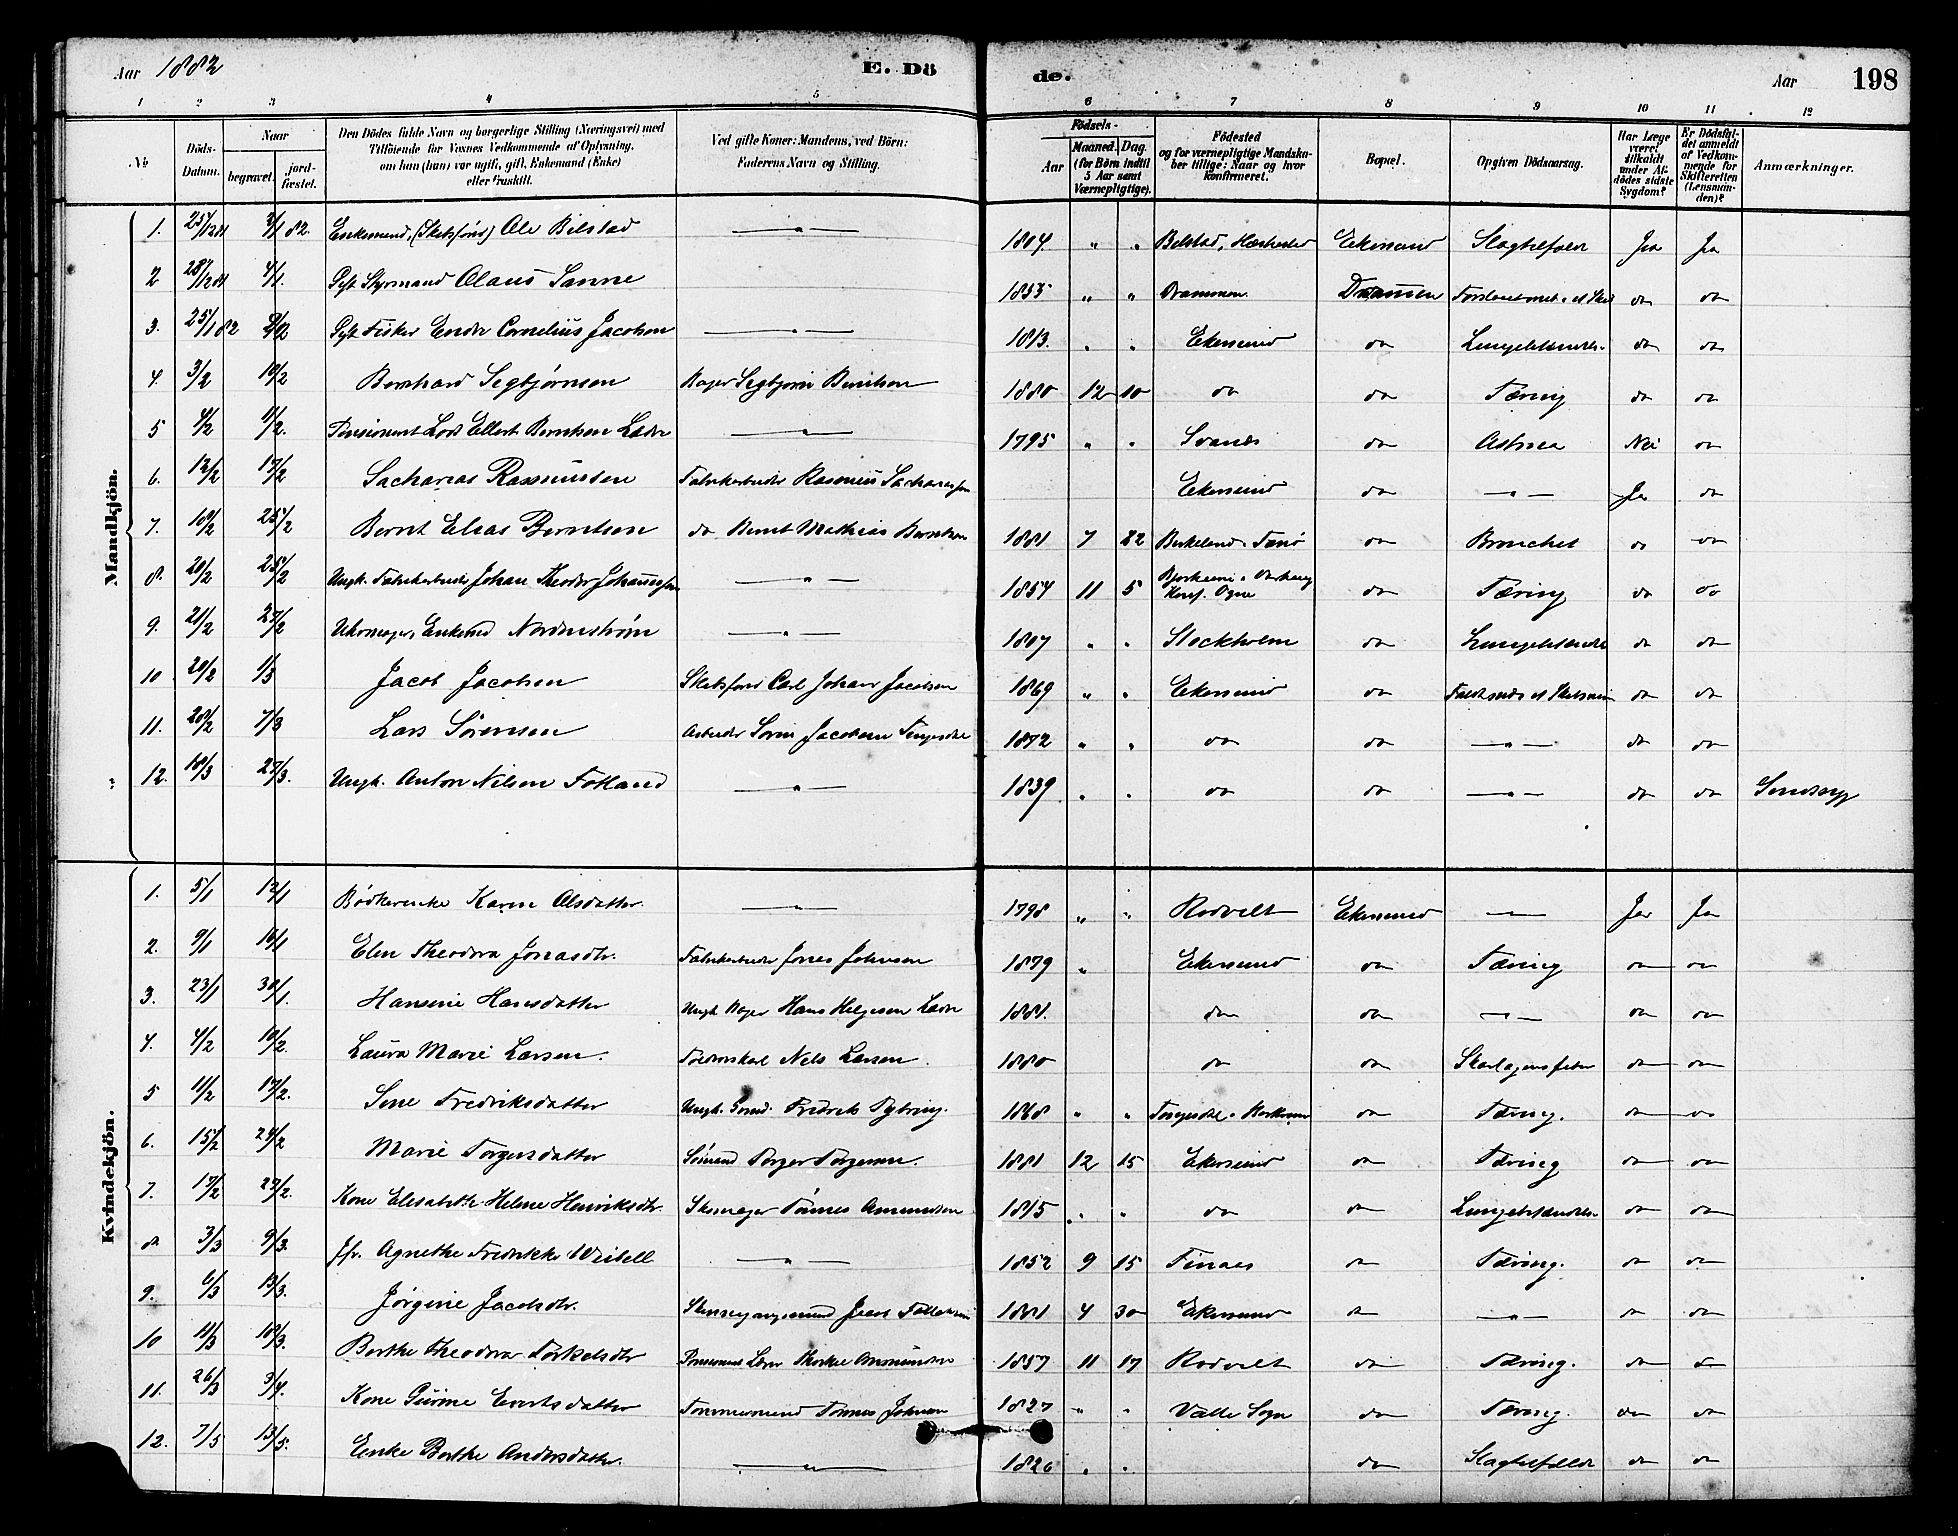 Aar 1882
E. Dö
de.
Aar
198
1 2 3 4 5 6 7 8 9 10 11 12
No
Döds-Datum.
Naar
begravet.
jordfæstet.
Den Dödes fulde Navn og borgerlige Stilling (Næringsvei) med Tilföiende for Voxnes Vedkommende af Oplysning, om han (hun) var ugift, gift, Enkemand (Enke) eller fraskilt.
Ved gifte Koner: Mandens, ved Börn: Faderens Navn og Stilling.
Födsels-
Aar
Maaned. Dag.
(for Börn indtil 5 Aar samt Værnepligtige).
Födested og for værnepligtige Mandskaber tillige: Naar og hvor konfirmeret.
Bopæl.
Opgiven Dödsaarsag.
Har Læge været tilkaldt under Afdödes sidste Sygdom?
Er Dödsfaldet anmeldt af Vedkommende for Skifteretten (Lensmanden)?
Anmærkninger.
Mandkjön.
1. 25/12 81 2/1 82. Enkemand, Ole Bilstad — " — 1804. " " Bilstad, Eikersund Slagtilfælde Ja Ja
2 28/12 81 4/1. Styrmand Olaus Sanne 1853 " " Drammen Drammen do do
3. 25/1 82 Fisker Cornelius Jacobsen — " — 1813. " " Ekersund do Lungebetændelse do do
4. 3/2 10/2 Bernhard Segbjørnsen Segbjørn Berntsen 1880 12 10 do do Tæring do do
5 4/2 11/2. Pensioneret Lods Ellert Berntsen — " — 1795 " " Svanes do Asthma Nei do
6. 12/2 17/2 Sacharias Rasmussen Fabrikarbeider Rasmus Sachariassen Ekersund do — " — Ja do
7. 18/2 25/2 Bernt Elias Berntsen do Bernt Mathias Berntsen 1881 7 22 Birkeland do do do
8. 20/2 25/2 Ungk. Fabrikarbeider Johan Theodor Johannessen — " — 1854 11 5 Konf. Ogne do Tæring do do
9. 21/2 27/2 Uhrmager, Enkemd Nordenstrøm — " — 1807 " " Stockholm do Lungebetændelse do do
10 20/2 1/3 Jacob Jacobsen Carl Johan Jacobsen 1869 " " Ekersund do do do
11. 28/2 7/3 Lars Sørensen Arbeider Søren Jacobsen Tengesdal 1872 " " do do — " — do do
12. 18/3 27/3. Ungk. Anton Nilsen Fotland — " — 1839. " " do do — " — do do Sindssyg
Kvindekjön.
1. 5/1 12/1 Bødkerenke Karen Olsdatter. — " — 1798 " " Rodvelt Ekersund — Ja Ja
2. 9/1 16/1 Elen Theodora Jonasdtr. Fabrikarbeider Jonas Johnsen 1879 " Ekersund do Tæring do do
3. 23/1 30/1. Hansine Hansdatter Ungk. Hans Helgesen 1881. do do — " — do do
4. 4/2 10/2. Laura Marie Larsen. Nels Larsen. 1880 do do Skarlagensfeber do do
5 11/2 17/2. Sine Fredriksdatter Ungk. Fredrik 1868 " " do Tæring. do do
6. 15/2 24/2 Marie Torgersdatter Sømand Torger Torgersen. 1881 12 15 Ekersund do Tæring do do
7. 17/2 27/2. Kone Elisabeth Helene Henriksdtr. Skomager Tønnes Amundsen 1815 " " do do Lungebetændelse do do
8 3/3 9/3. Jfr. Agnethe Fredrikke Weibell — " — 1852 9 15 do Tæring. do do
9. 6/3 13/3. Jørgine Jacobsdtr. Jacob 1881 4 30 Ekersund do — " — do do
10 11/3 18/3. Berthe Theodora Torkelsdtr 1857 11 17 Rodvelt do Tæring. do do
11. 26/3 3/4. Kone Gurine Evertsdatter Tømmermand Tønnes Johnsen 1827 " " Valle Sogn do Tæring. do do
12. 7/5 13/5. Enke Berthe Andersdatter. — " — 1826 " " do Slagtilfælde do do